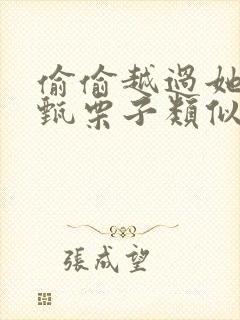 偷偷越過她
甄栗子類似
張成望